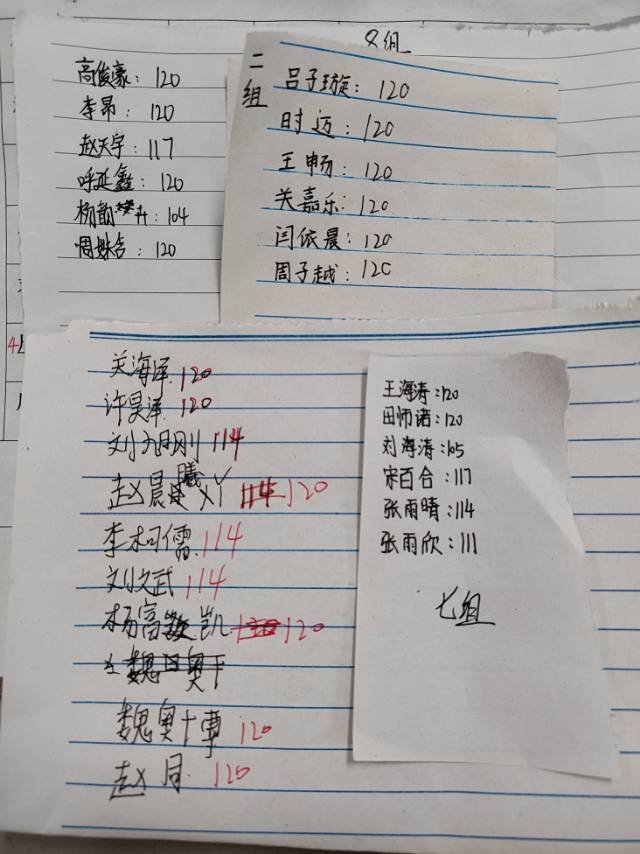 8组
高俊豪: 120
李昂: 120
赵天宇: 117
呼延鑫: 120
杨韵: 104
周姝含: 120
二组
吕子璇: 120
时迈: 120
王畅: 120
关嘉乐: 120
闫依晨: 120
周子越: 120
关海泽 120
许昊泽 120
刘明刚 114
赵晨曦 114 120
李柯儒 114
刘文武 114
杨富凯 120 120
魏奥博 120
赵月 120
王海涛:120
田师诺:120
刘海涛:105
宋百合:117
张雨晴:114
张雨欣:111
七组